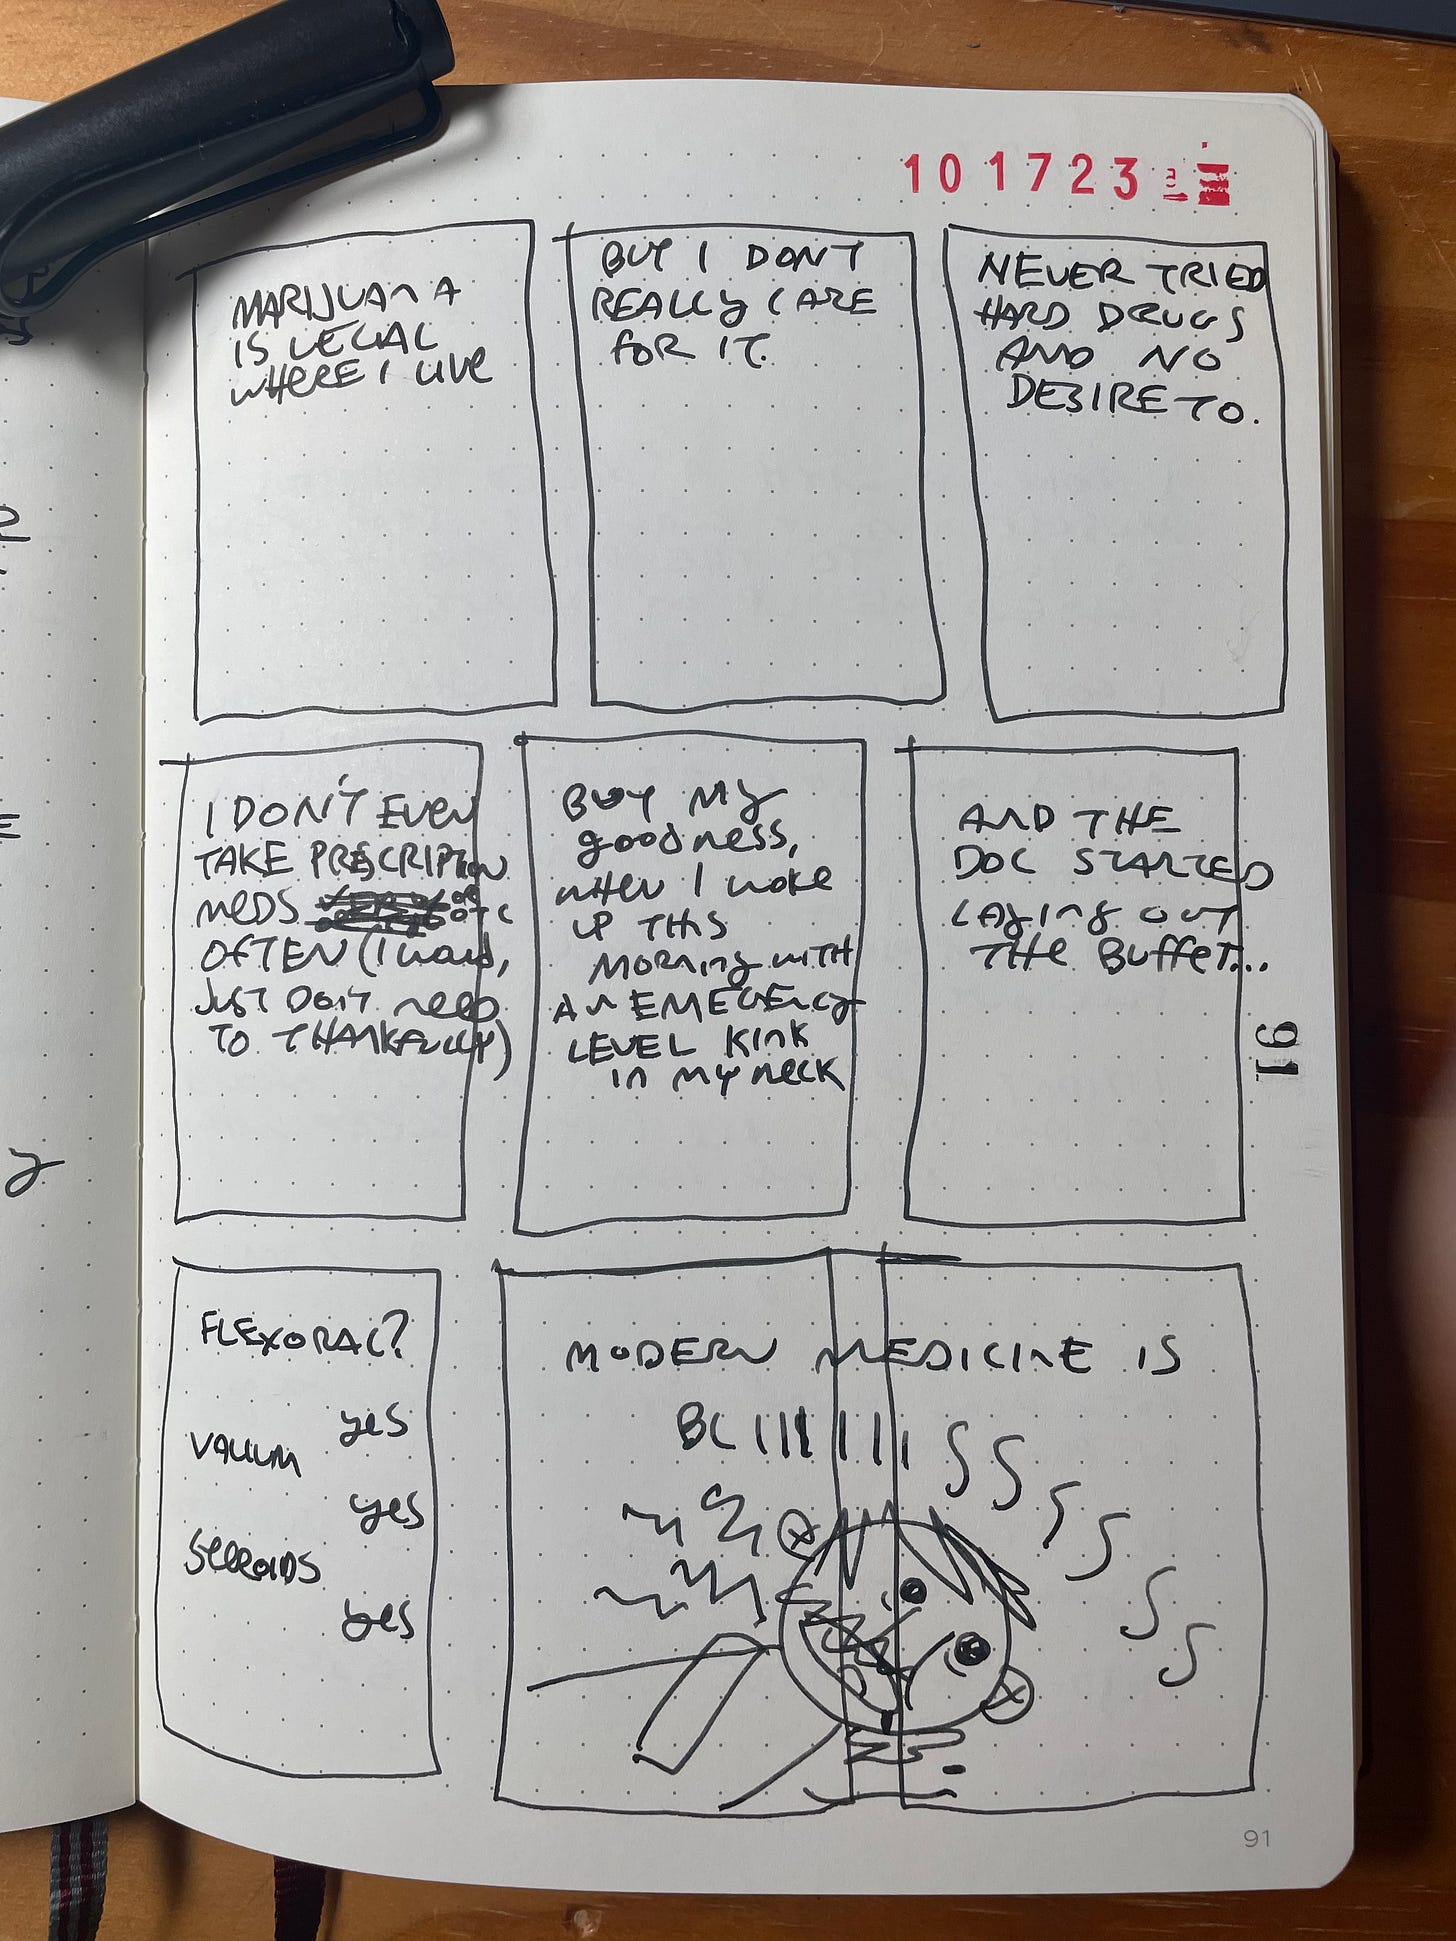 101723
MARIJUANA
IS LEGAL
WHERE I LIVE
BUT I DON'T
REALLY CARE
FOR IT.
NEVER TRIED
HARD DRUGS
AND NO
DESIRE TO.
I DON'T EVEN
TAKE PRESCRIPTION
MEDS OR
OTC
OFTEN (I WOULD,
JUST DON'T NEED
TO THANKFULLY)
BUT MY
goodness,
WHEN I WOKE
UP THIS
MORNING WITH
AN EMERGENCY
LEVEL KINK
IN MY NECK
AND THE
DOC STARTED
LAYING OUT
THE BUFFET...
91
FLEXORAL?
yes
VALIUM
yes
STEROIDS
yes
MODERN MEDICINE IS
BLIIIIIIISSSSSS
91